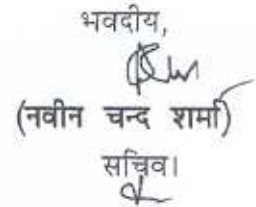 भवदीय,
(नवीन चन्द शर्मा)
सचिव।